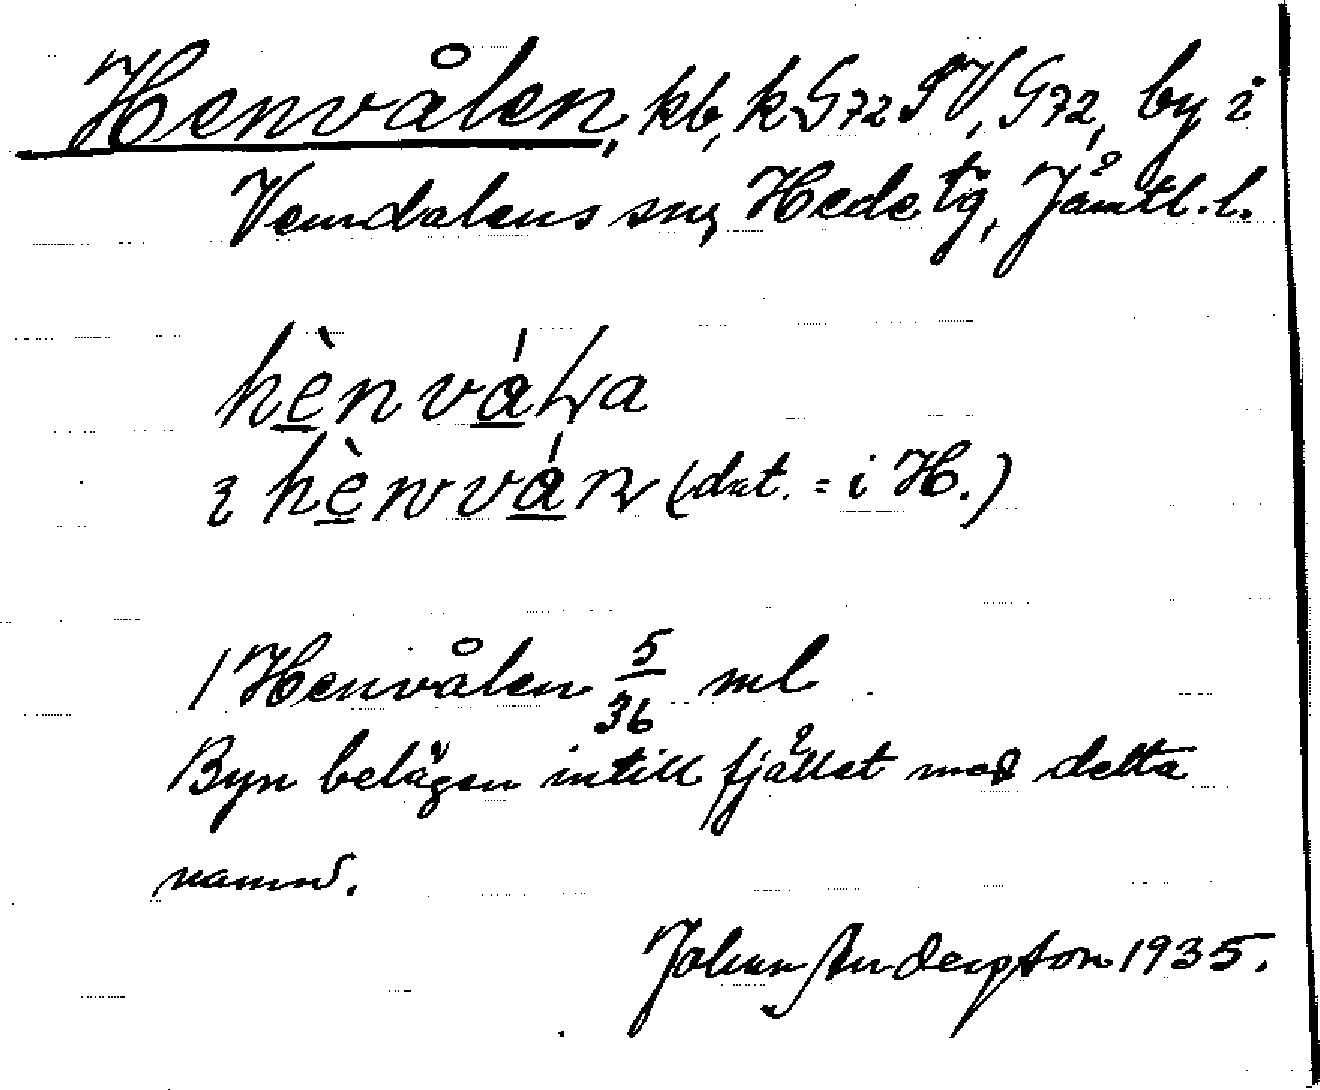 Henvålen, kb, k G72 SV, G72, by i
Vemdalens sn, Hede tg, Jämtl. l.
hènvála
i hènván (dat. = i H.)
1 Henvålen 5/36 ml
Byn belägen intill fjället med detta
namn.
Johan Anderson 1935.